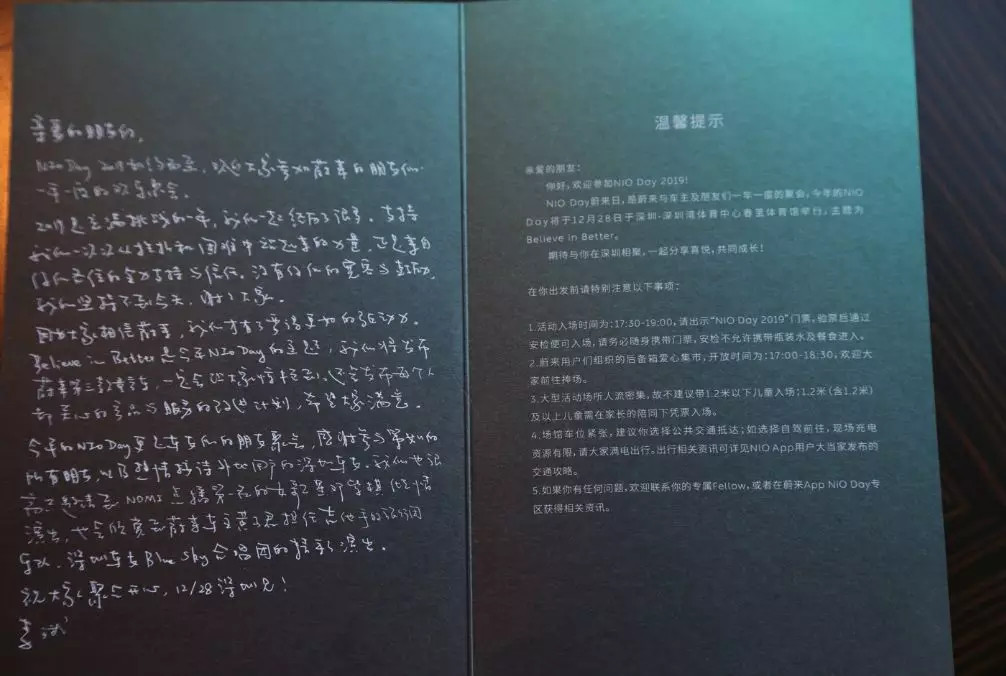 亲爱的朋友们，
NIO Day 2019
一年一度的欢乐聚会。
2019是充满挑战的一年，我们一起经历了很多。支持
我们一次次从挫折和困难中站起来的力量，还是来自
你们
我们坚持不到今天，谢谢大家。
因为大家相信蔚来，我们才有了变得更好的驱动力。
Believe in Better是今年NIO Day的主题，我们将发布
蔚来第三款量产车，一定会让大家惊喜到。还会发布每个人
都关心的产品与服务的改进计划，希望大家满意。
今年的NIO Day更是车友们的朋友聚会，感谢参与策划的
所有朋友，以及热情接待外地用户的深圳车友。我们也很
NOMI
演出，也会欣赏到蔚来车主
乐队、深圳车友Blue Sky合唱团的精彩演出。
祝大家聚会开心，12/28深圳见！
李斌
温馨提示
亲爱的朋友：
你好，欢迎参加NIO Day 2019!
NIO Day蔚来日，是蔚来与车主及朋友们一年一度的聚会，今年的NIO
Day将于12月28日于深圳·深圳湾体育中心春茧体育馆举台，主题为
Believe in Better。
期待与你在深圳相聚，一起分享喜悦，共同成长！
在你出发前请特别注意以下事项：
1.活动入场时间为：17:30-19:00，请出示“NIO Day 2019”门票，验票后通过
安检便可入场，请务必随身携带门票，安检不允许携带瓶装水及餐食进入。
2.蔚来用户们组织的后备箱爱心集市，开放时间为：17:00-18:30，欢迎大
家前往捧场。
3.大型活动场所人流密集，故不建议带1.2米以下儿童入场；1.2米(含1.2米)
及以上儿童需在家长的陪同下凭票入场。
4.场馆车位紧张，建议你选择公共交通抵达；如选择自驾前往，现场充电
资源有限，请大家满电出行。出行相关资讯可详见NIO App用户大当家发布的
交通攻略。
5.如果你有任何问题，欢迎联系你的专属Fellow，或者在蔚来App NIO Day专
区获得相关资讯。